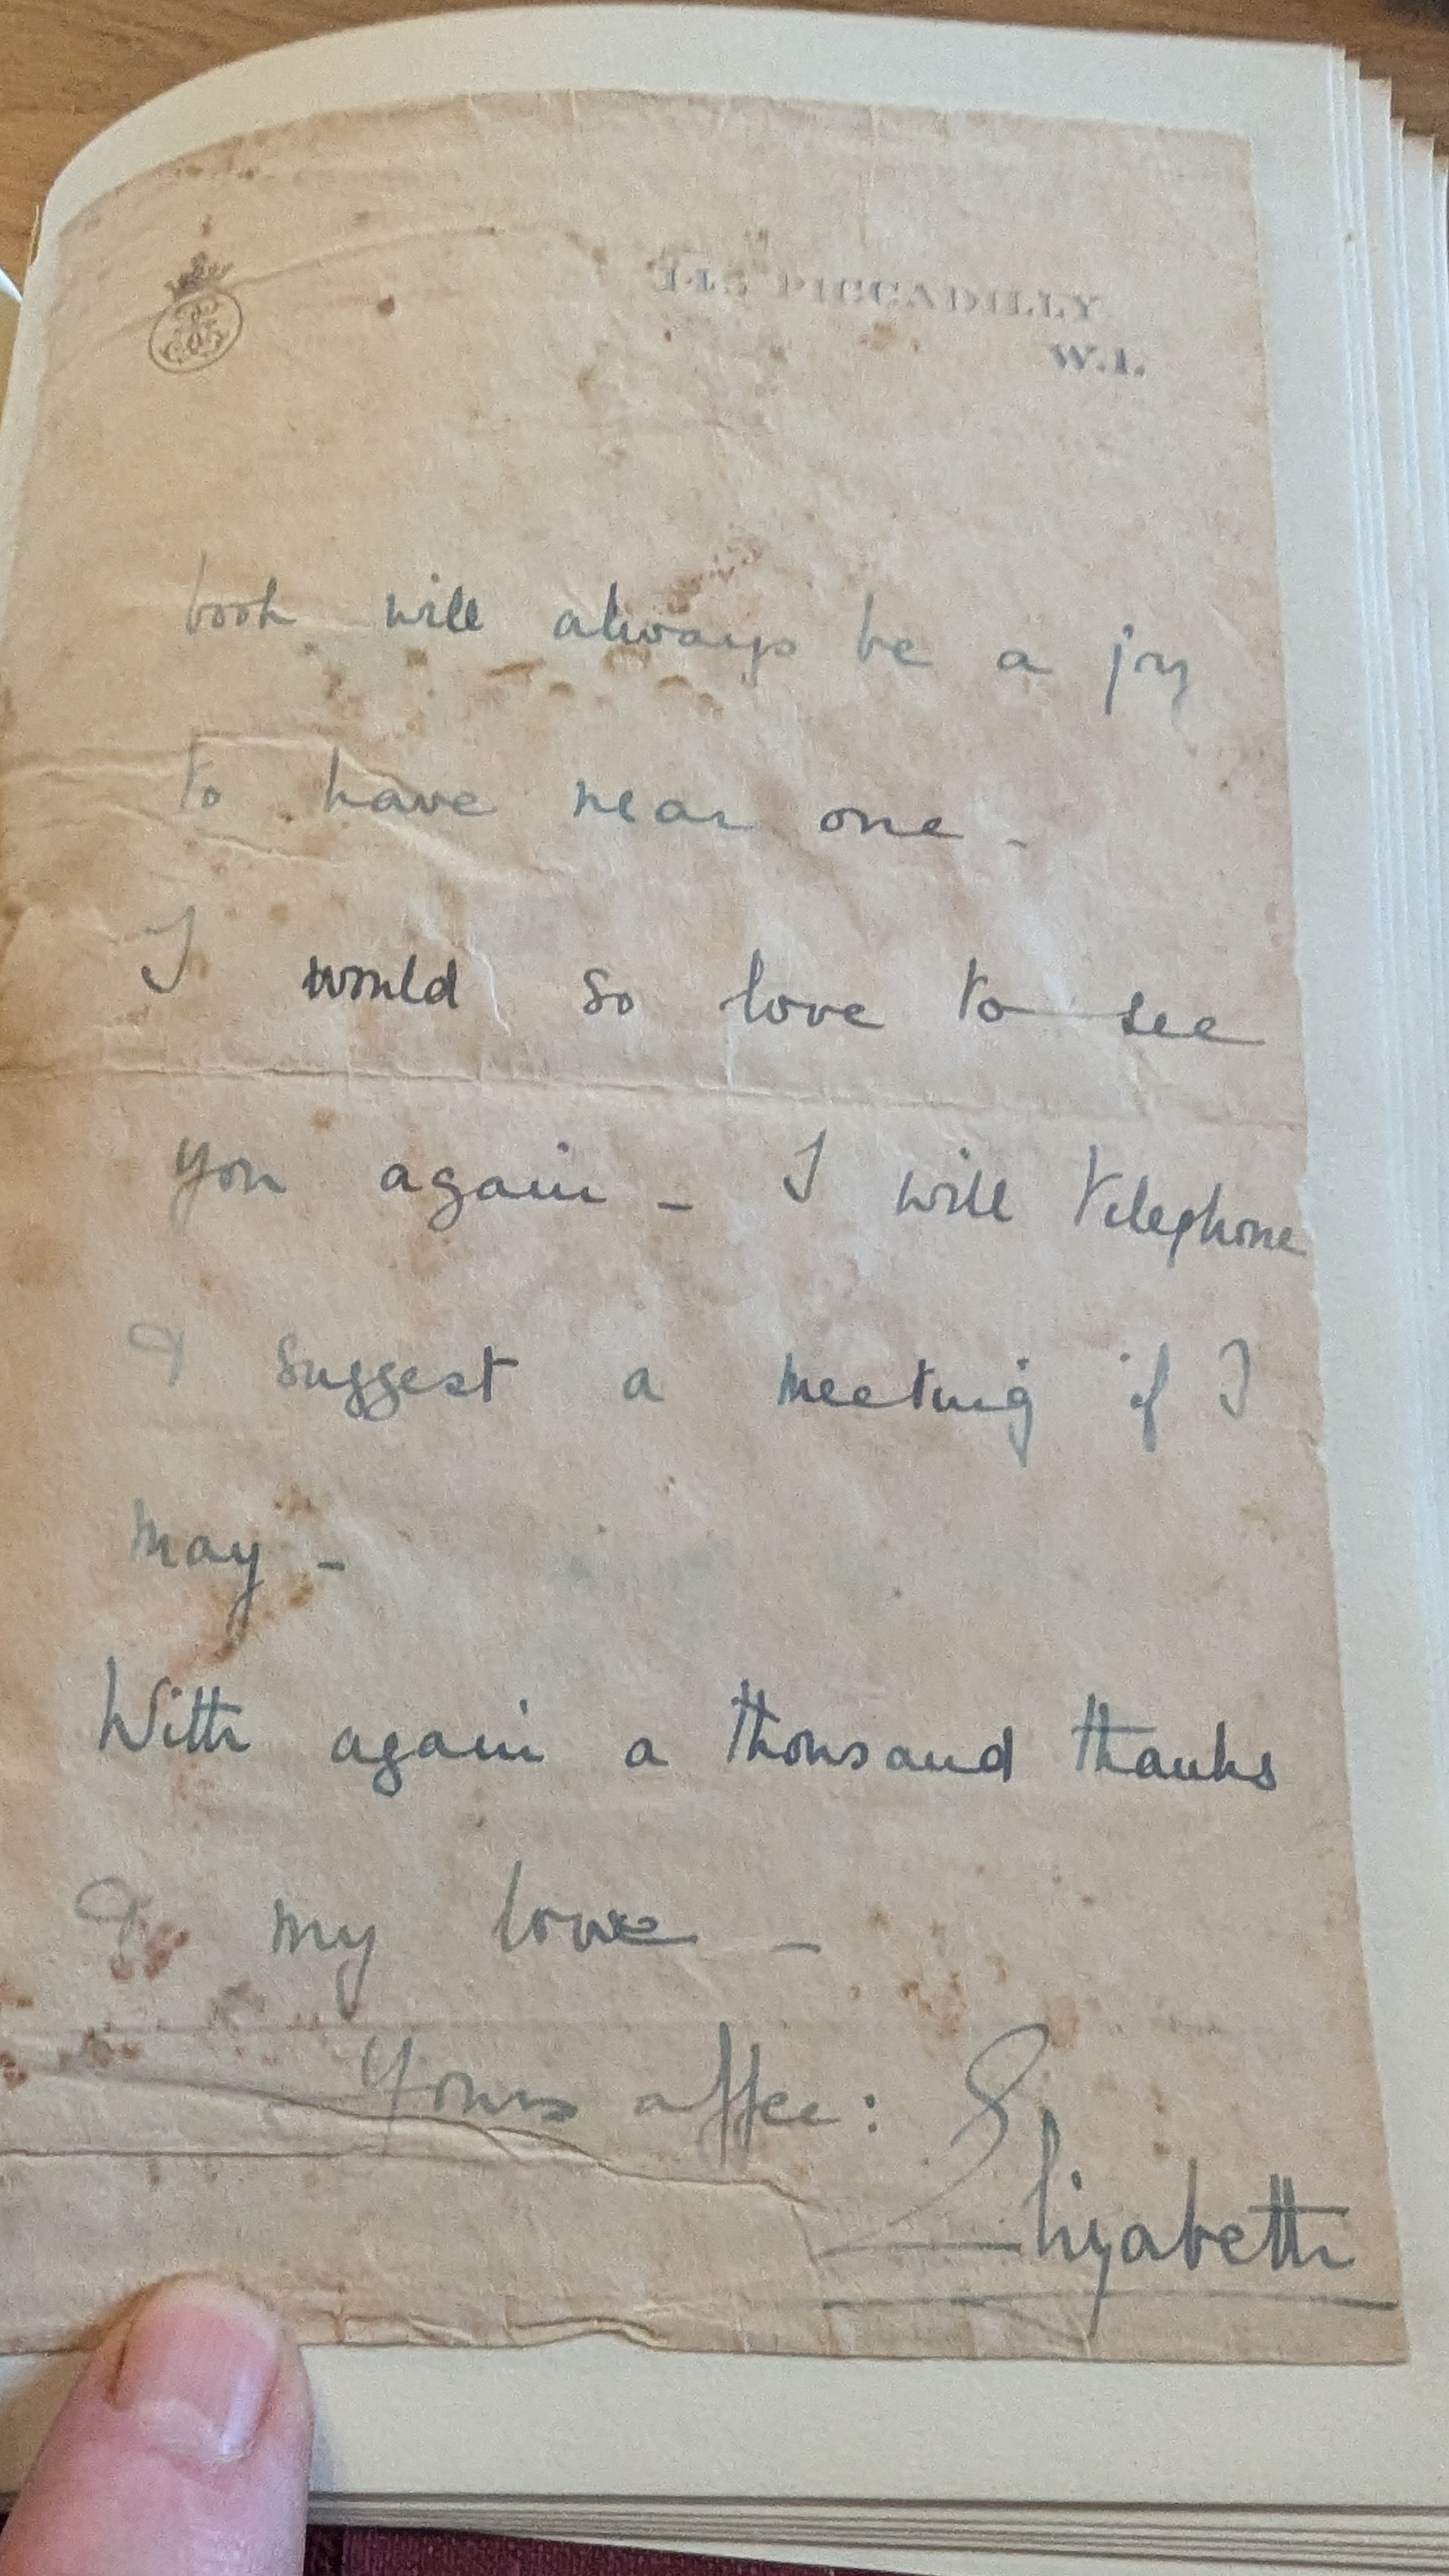 145 PICCADILLY
W.1.
book will always be a joy
to have near one -
I would so love to see
you again - I will telephone
& suggest a meeting if I
may -
With again a thousand thanks
& my love -
Yours affec: Elizabeth